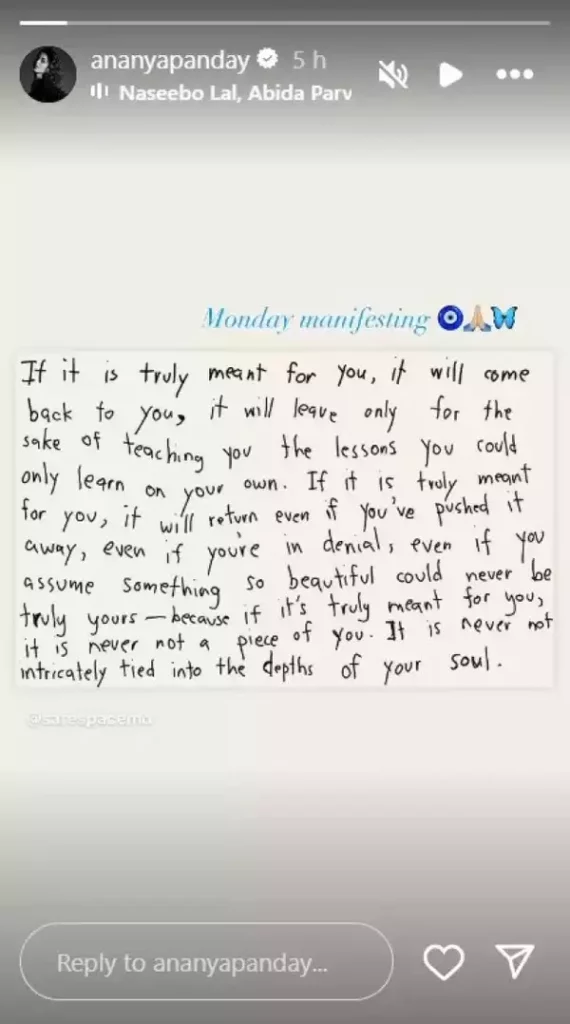 ananyapanday 5 h
Naseebo Lal, Abida Parv
Monday manifesting 🧿🙏🏼🦋
If it is truly meant for you, it will come
back to you, it will leave only for the
sake of teaching you the lessons you could
only learn on your own. If it is truly meant
for you, it will return even if you've pushed it
away, even if you're in denial, even if you
assume something so beautiful could never be
truly yours — because if it's truly meant for you,
it is never not a piece of you. It is never not
intricately tied into the depths of your soul.
Reply to ananyapanday...